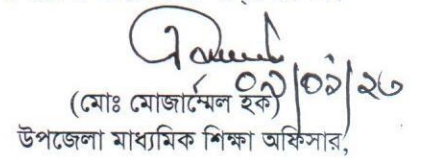 ০৯/০১/২৩
(মোঃ মোজাম্মেল হক)
উপজেলা মাধ্যমিক শিক্ষা অফিসার,